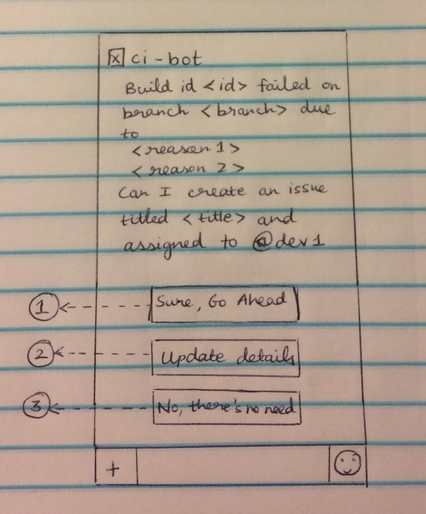 ci-bot
Build id <id> failed on
branch <branch> due
to
<reason 1>
<reason 2>
Can I create an issue
titled <title> and
assigned to @dev1
1
Sure, Go Ahead
2
Update details
3
No, there's no need
+